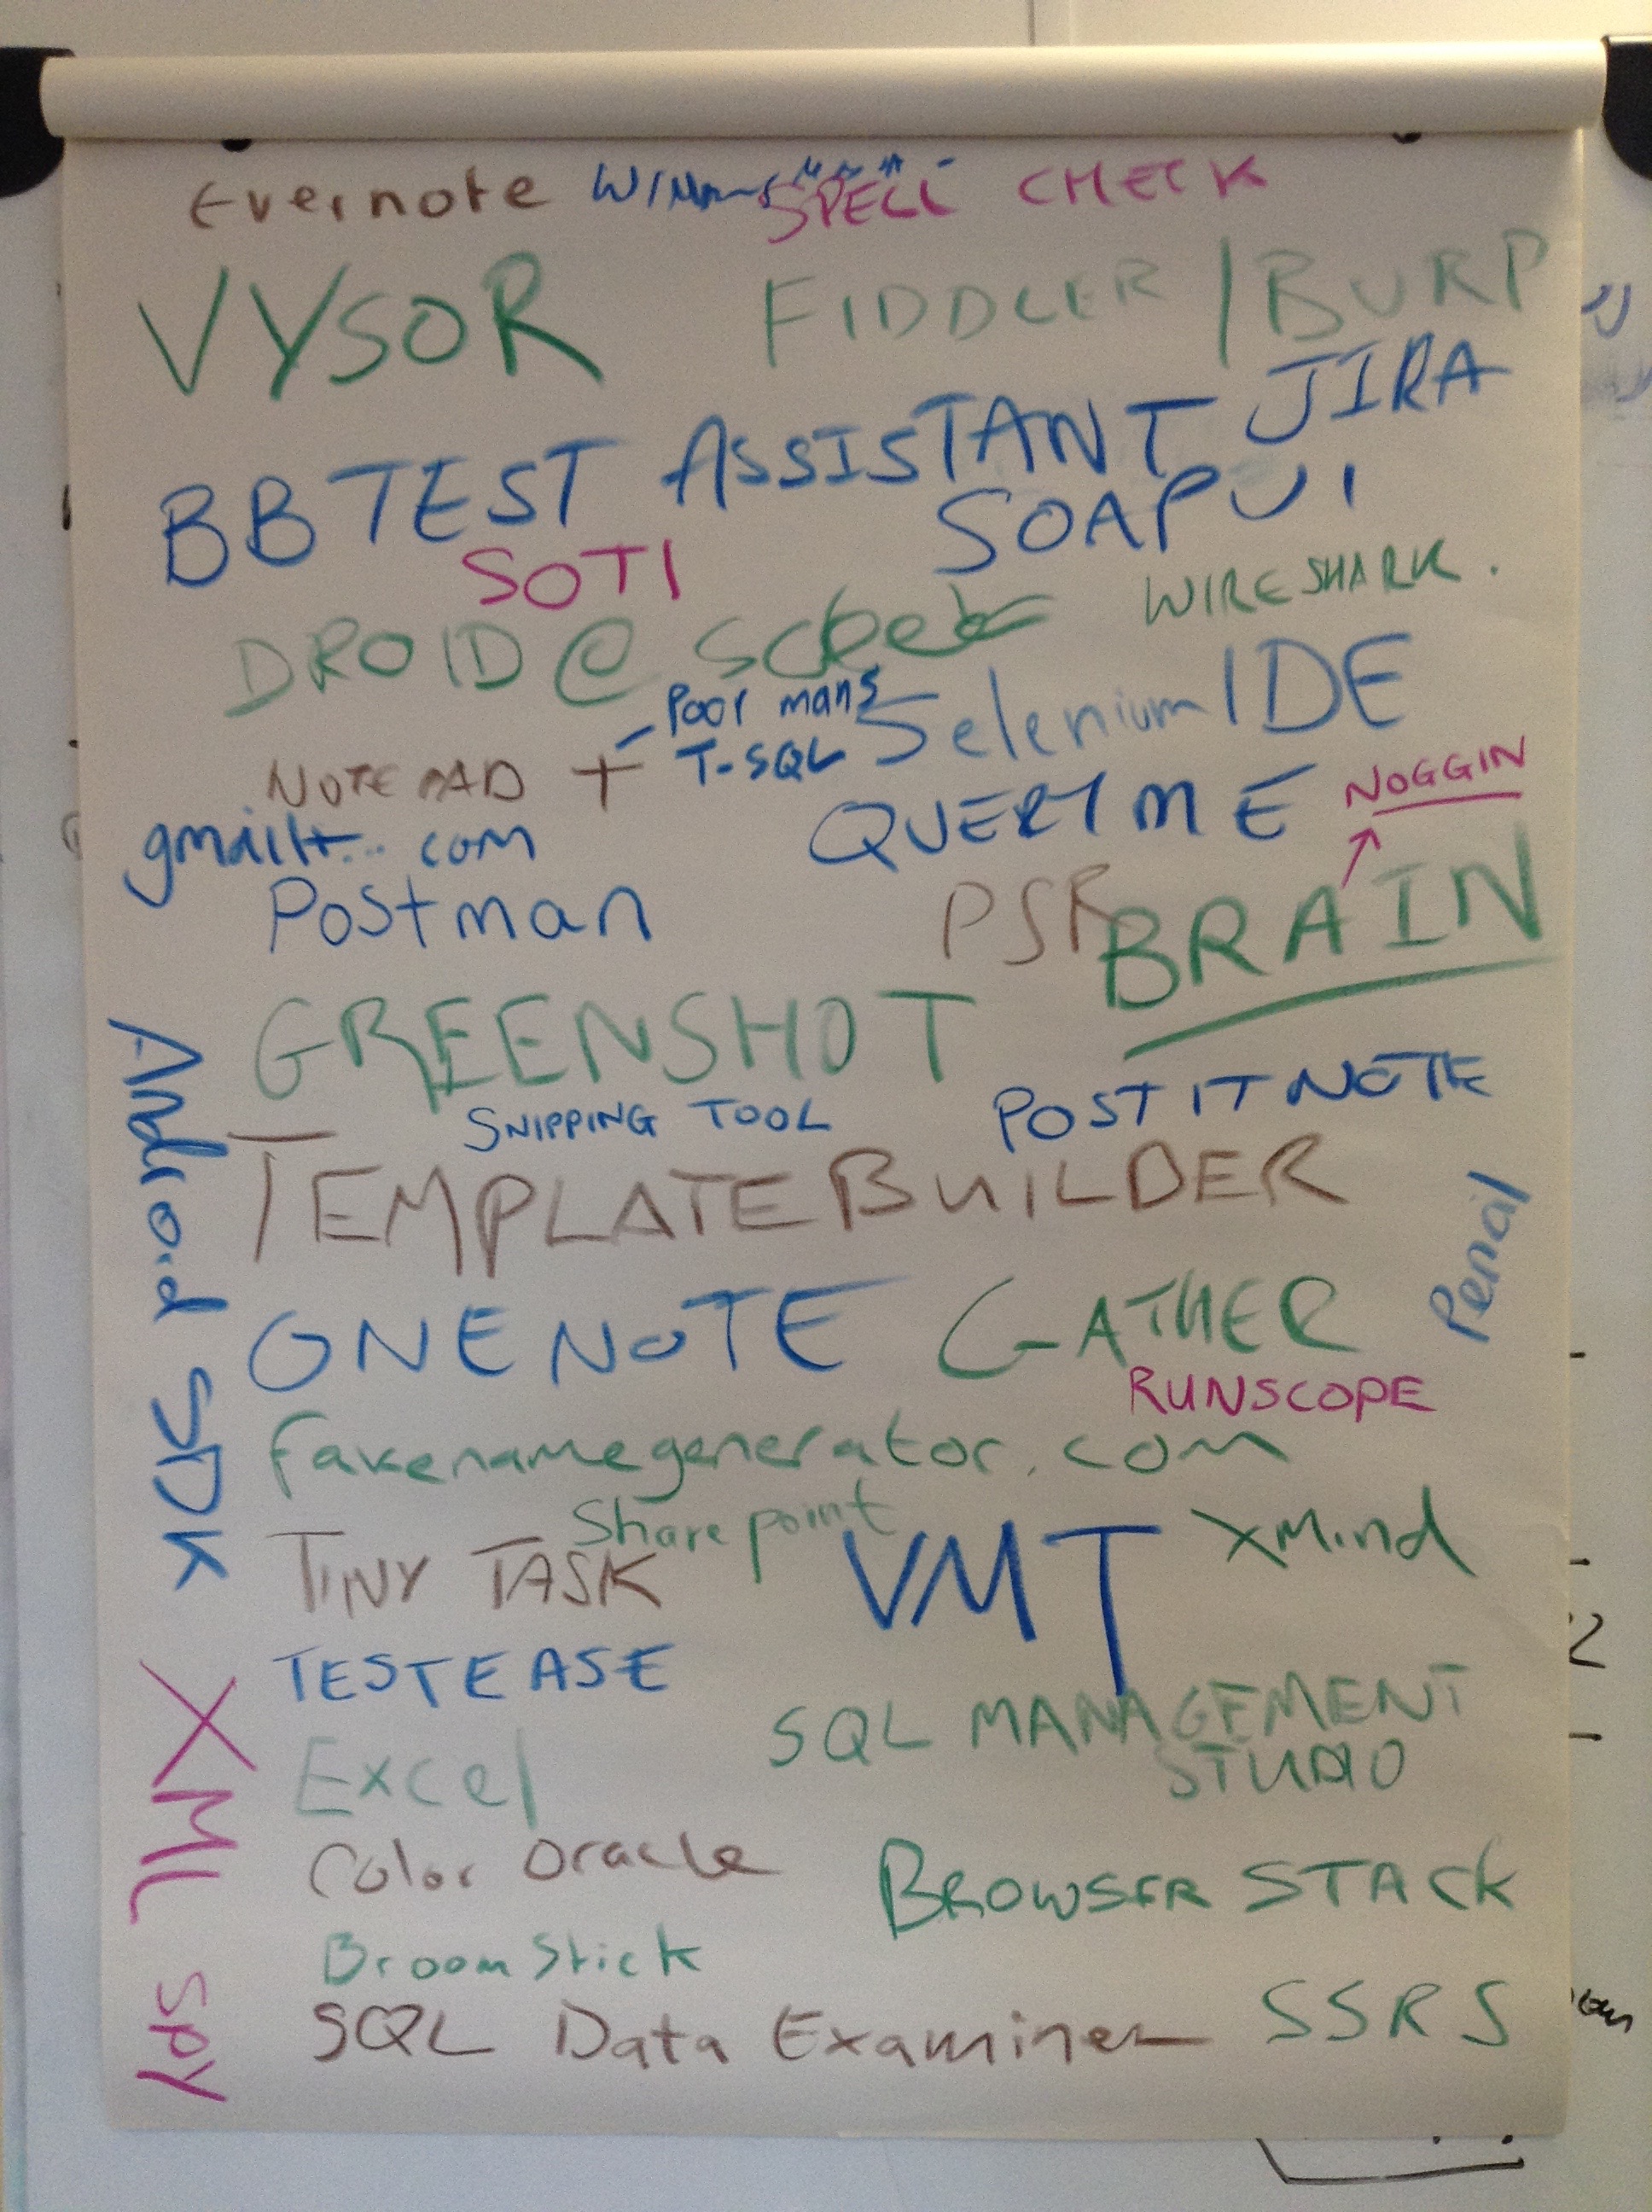 Evernote SPELL CHECK
VYSOR FIDDLER / BURP
BB TEST ASSISTANT JIRA
SOAPUI
SOTI
DROID @ WIRESHARK.
Poor mans
T-SQL
Selenium IDE
NOTEPAD +
QUERY ME NOGGIN
gmail+... com
Postman PSR BRAIN
GREENSHOT
SNIPPING TOOL POST IT NOTE
TEMPLATE BUILDER
Android SDK
Pencil
ONE NOTE GATHER
RUNSCOPE
fakenamegenerator.com
Sharepoint
TINY TASK VMT XMind
TESTEASE
SQL MANAGEMENT
STUDIO
Excel
XML SPY
Color Oracle
BROWSER STACK
BroomStick
SQL Data Examiner SSRS